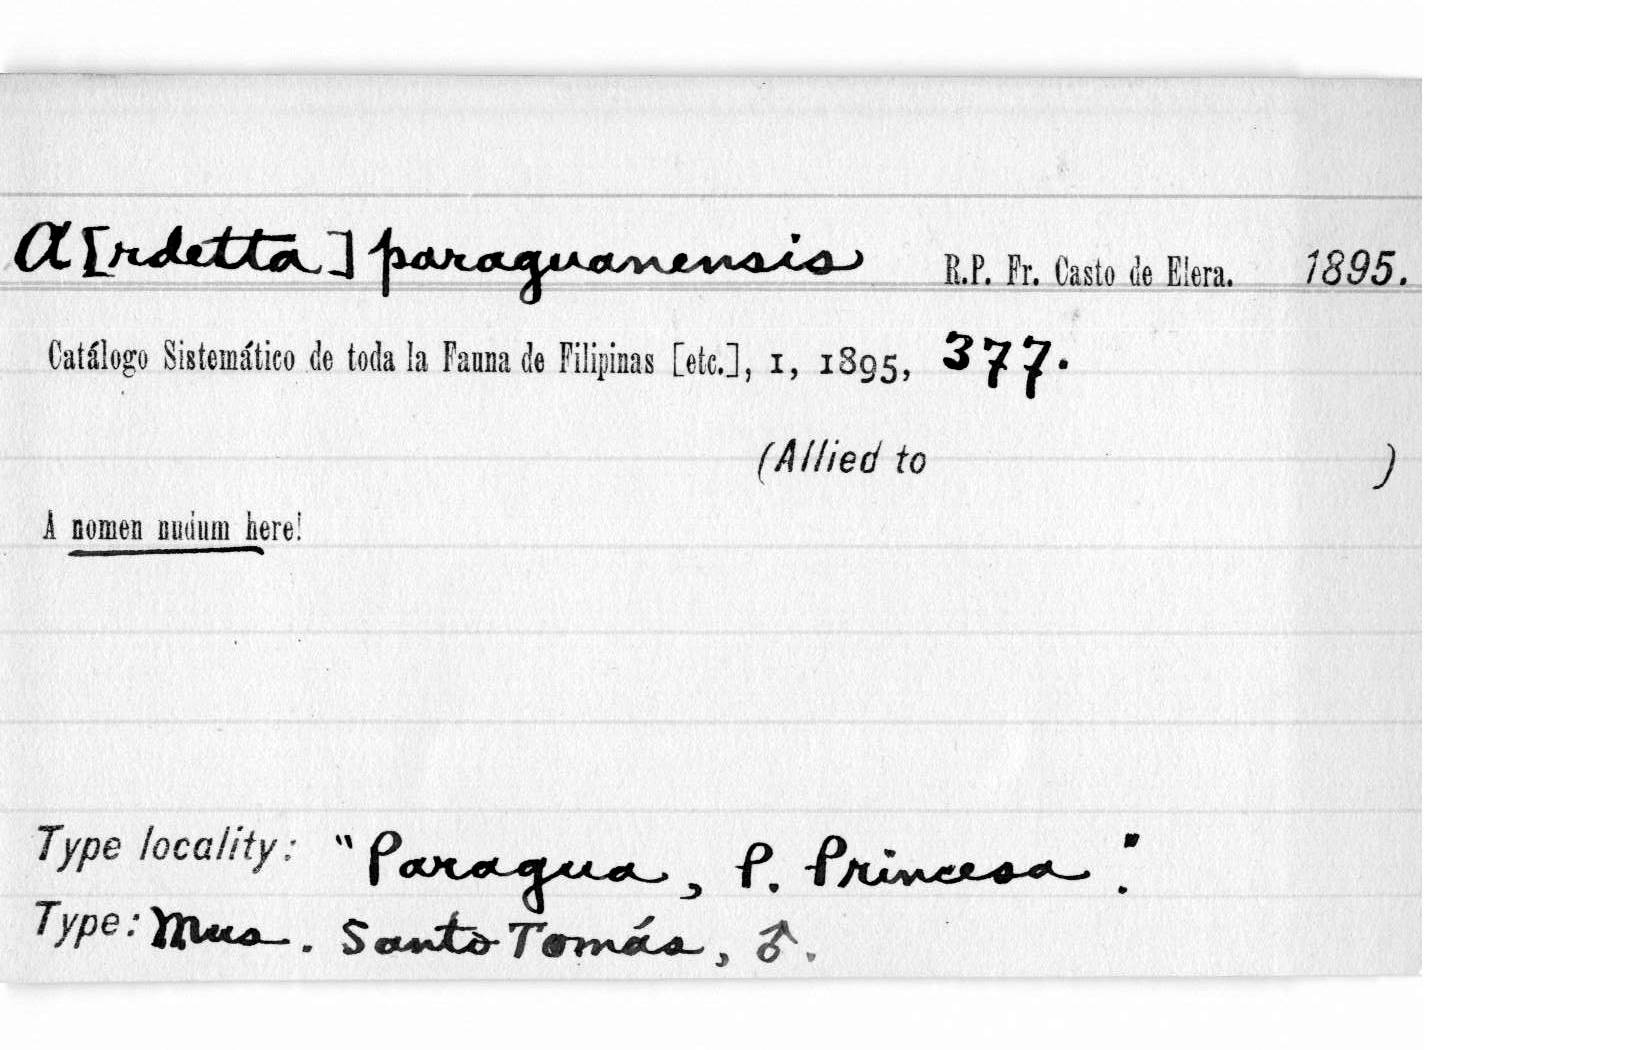 A[rdetta] paraguanensis R.P. Fr. Casto de Elera. 1895.
Catálogo Sistemático de toda la Fauna de Filipinas [etc.], 1, 1895, 377.
(Allied to )
A nomen nudum here!
Type locality: "Paragua, P. Princesa".
Type: Mus. Santo Tomás, ♂.